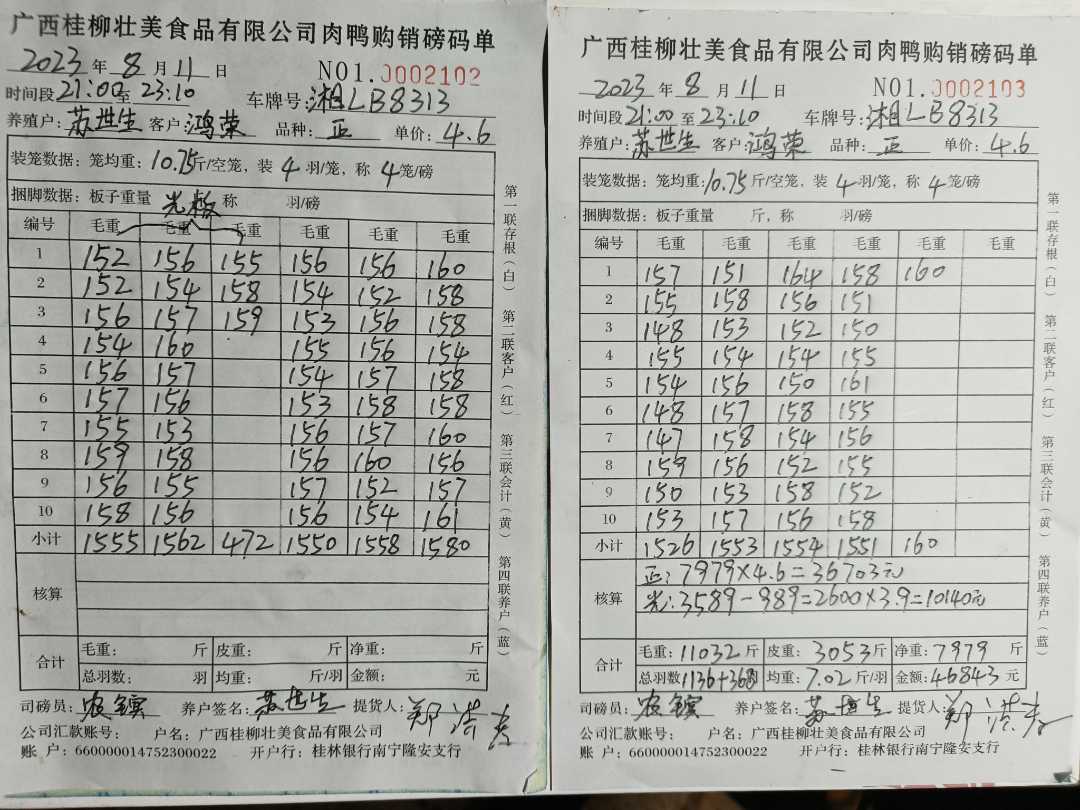 广西桂柳壮美食品有限公司肉鸭购销磅码单
2023 年 8 月 11 日 NO1.0002102
时间段 21:00 至 23:10 车牌号: 湘LB8313
养殖户: 苏世生 客户: 鸿荣 品种: 正 单价: 4.6
装笼数据: 笼均重: 10.75 斤/空笼, 装 4 羽/笼, 称 4 笼/磅
捆脚数据: 板子重量 光板 称 羽/磅
编号 毛重 毛重 毛重 毛重 毛重 毛重
1 152 156 155 156 156 160
2 152 154 158 154 152 158
3 156 157 159 153 156 158
4 154 160 155 156 154
5 156 157 154 157 158
6 157 156 153 158 158
7 155 153 156 157 160
8 159 158 156 160 156
9 156 155 157 152 157
10 158 156 156 154 161
小计 1555 1562 472 1550 1558 1580
核算
合计 毛重: 斤 皮重: 斤 净重: 斤
总羽数: 羽 均重: 斤/羽 金额: 元
司磅员: 农镔 养户签名: 苏世生 提货人: 郑
公司汇款账号: 户名: 广西桂柳壮美食品有限公司
账 户: 660000014752300022 开户行: 桂林银行南宁隆安支行
第一联存根(白) 第二联客户(红) 第三联会计(黄) 第四联养户(蓝)
广西桂柳壮美食品有限公司肉鸭购销磅码单
2023 年 8 月 11 日 NO1.0002103
时间段 21:00 至 23:10 车牌号: 湘LB8313
养殖户: 苏世生 客户: 鸿荣 品种: 正 单价: 4.6
装笼数据: 笼均重: 10.75 斤/空笼, 装 4 羽/笼, 称 4 笼/磅
捆脚数据: 板子重量 斤, 称 羽/磅
编号 毛重 毛重 毛重 毛重 毛重 毛重
1 157 151 164 158 160
2 155 158 156 151
3 148 153 152 150
4 155 154 154 155
5 154 156 150 161
6 148 157 158 155
7 147 158 154 156
8 159 156 152 155
9 150 153 158 152
10 153 157 156 158
小计 1526 1553 1554 1551 160
核算 正: 7979×4.6=36703元
光: 3589-989=2600×3.9=10140元
合计 毛重: 11032 斤 皮重: 3053 斤 净重: 7979 斤
总羽数 1136+368 均重: 7.02 斤/羽 金额: 46843 元
司磅员: 农镔 养户签名: 苏世生 提货人: 郑
公司汇款账号: 户名: 广西桂柳壮美食品有限公司
账 户: 660000014752300022 开户行: 桂林银行南宁隆安支行
第一联存根(白) 第二联客户(红) 第三联会计(黄) 第四联养户(蓝)